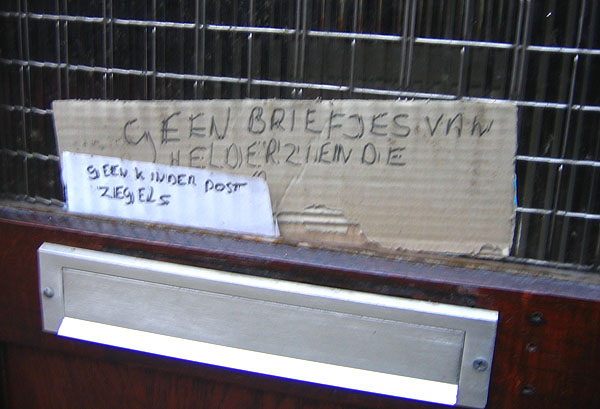 GEEN BRIEFJES VAN
HELDERZIENDE
GEEN KINDER POST
ZIEGELS